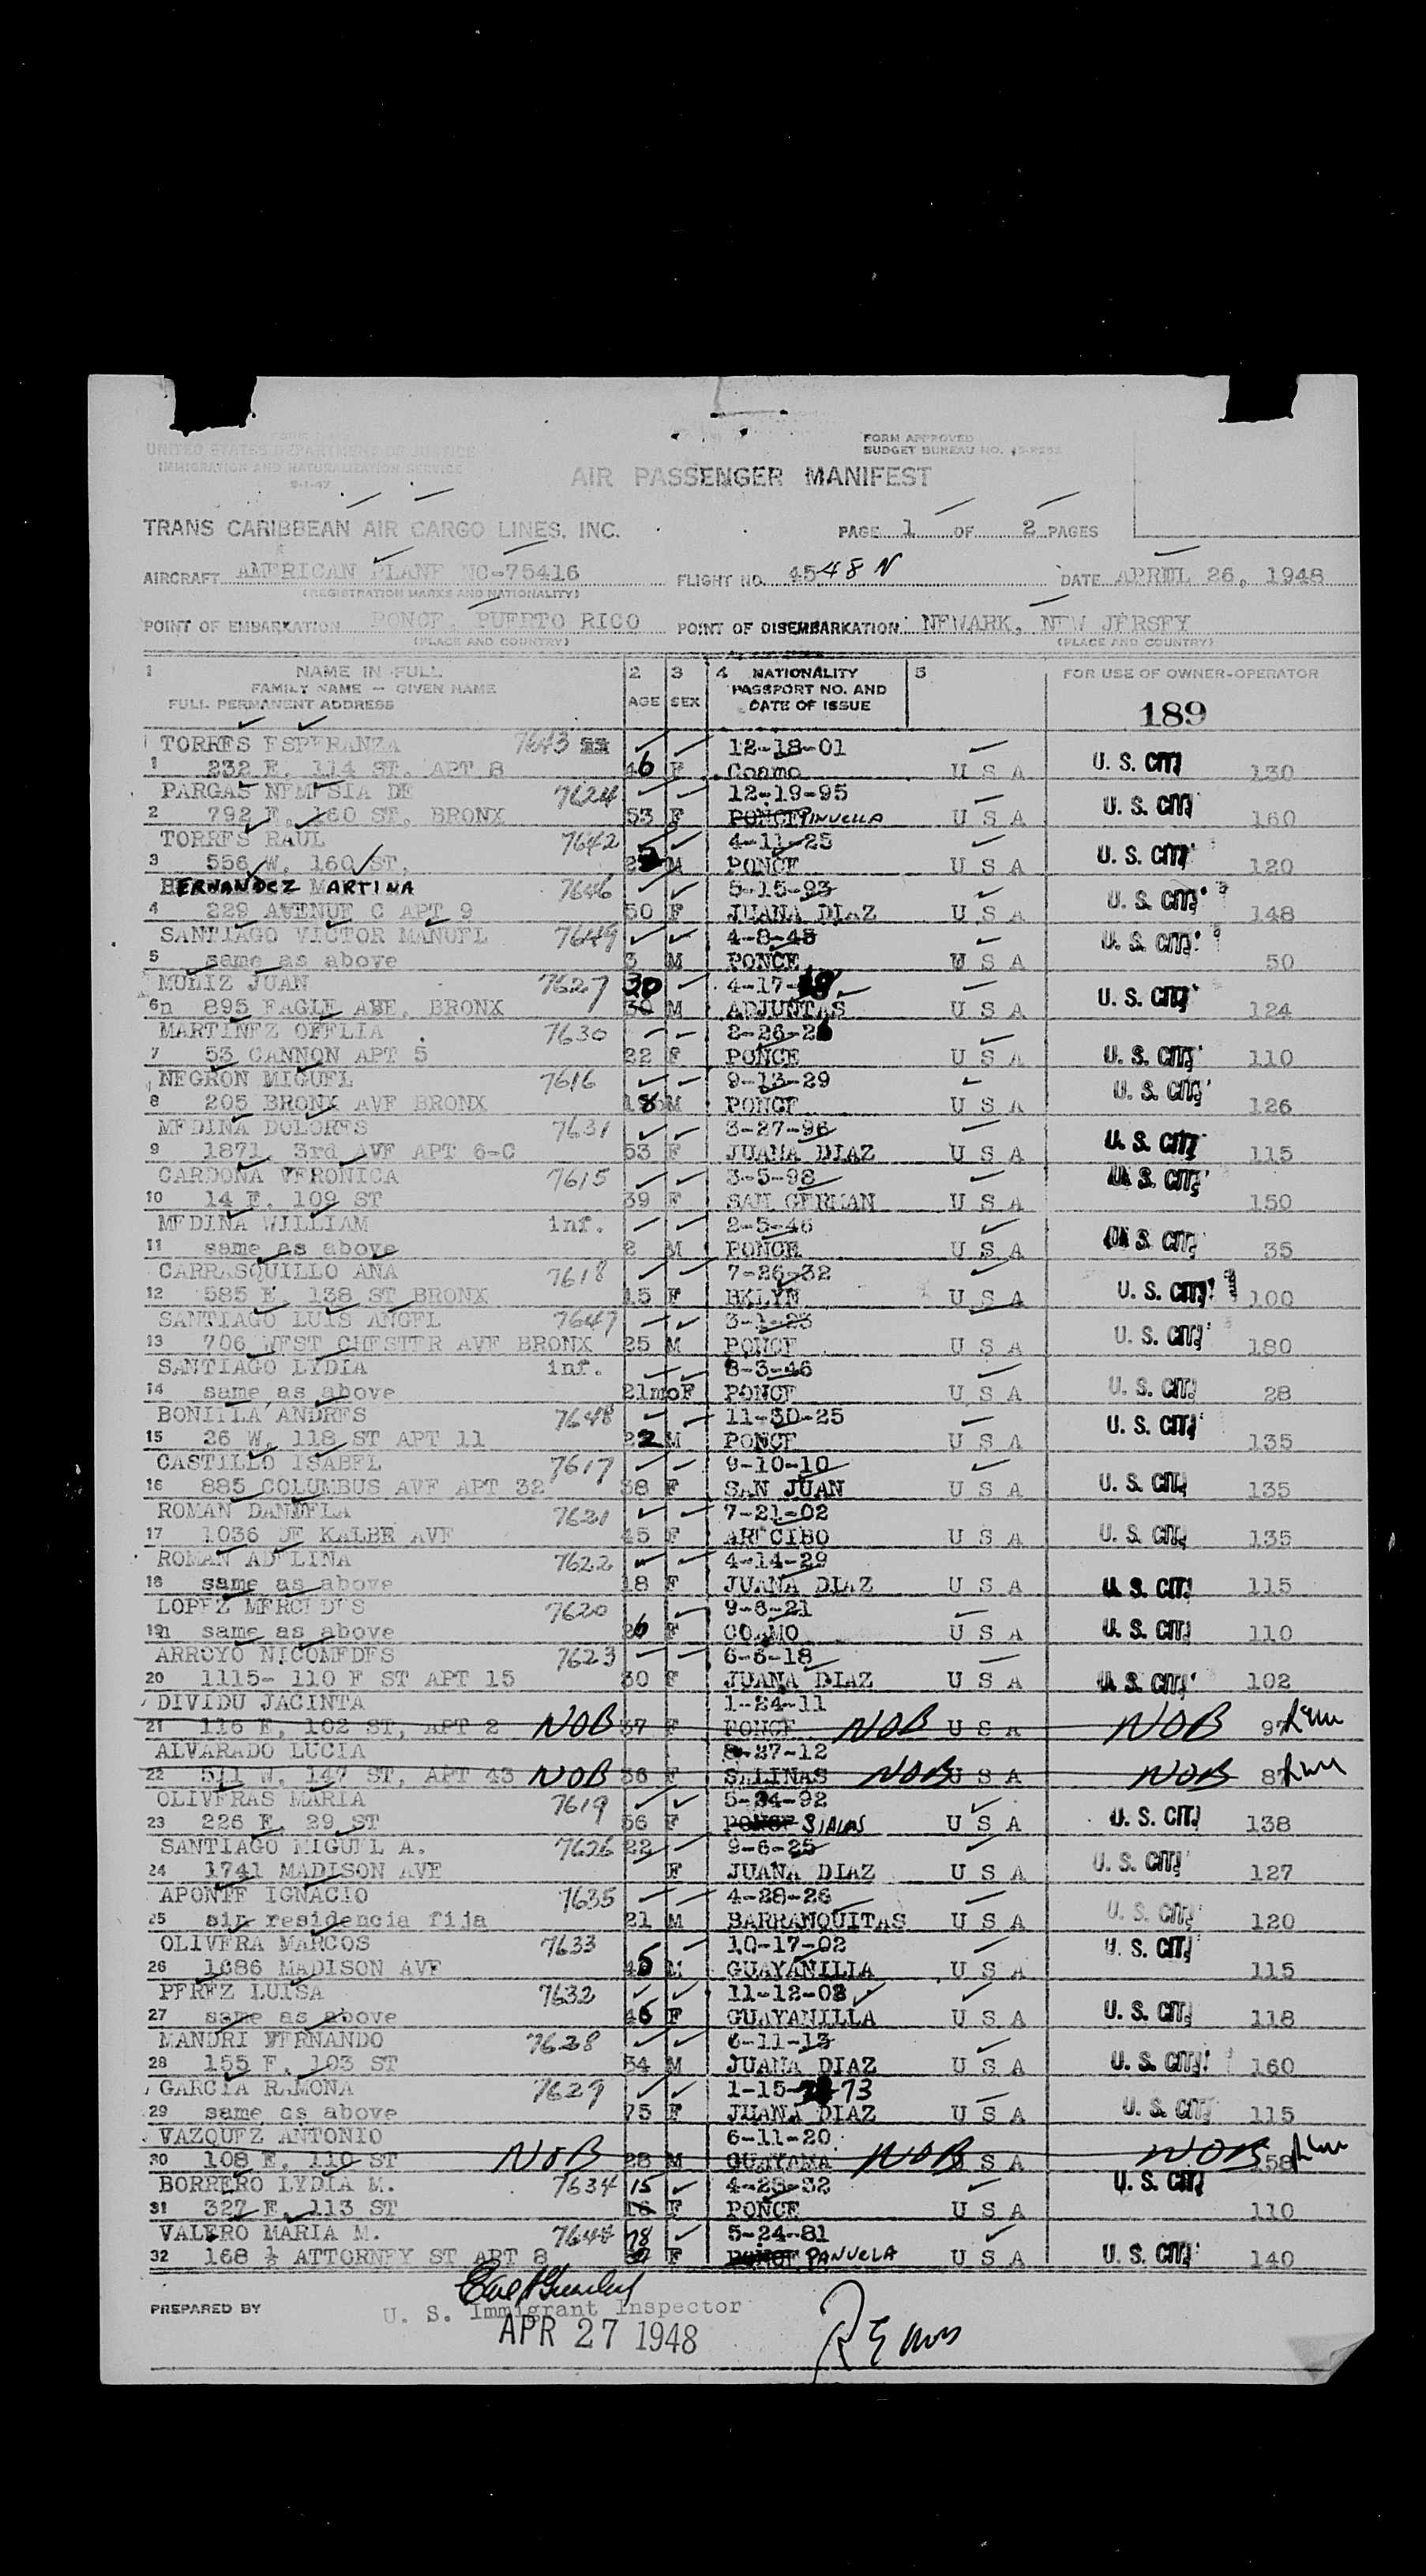 UNITED STATES DEPARTMENT OF JUSTICE
IMMIGRATION AND NATURALIZATION SERVICE
FORM APPROVED
BUDGET BUREAU NO.
AIR PASSENGER MANIFEST
TRANS CARIBBEAN AIR CARGO LINES, INC. PAGE 1 OF 2 PAGES
AIRCRAFT AMERICAN PLANE NC-75416 FLIGHT NO. 4548 N DATE APRIL 26, 1948
(REGISTRATION MARKS AND NATIONALITY)
POINT OF EMBARKATION PONCE, PUERTO RICO POINT OF DISEMBARKATION NEWARK, NEW JERSEY
(PLACE AND COUNTRY) (PLACE AND COUNTRY)
1 NAME IN FULL 2 3 4 NATIONALITY 5 FOR USE OF OWNER-OPERATOR
FAMILY NAME — GIVEN NAME PASSPORT NO. AND
FULL PERMANENT ADDRESS AGE SEX DATE OF ISSUE 189
TORRES ESPERANZA 7643 12-18-01
1 232 E. 114 ST. APT 8 46 F Coamo U S A U. S. CIT. 130
PARGAS NEMESIA DE 7624 12-19-95
2 792 E. 160 ST. BRONX 53 F PONCE U S A U. S. CIT. 160
TORRES RAUL 7642 4-11-25
3 556 W. 160 ST, M PONCE U S A U. S. CIT. 120
HERNANDEZ MARTINA 7646 5-15-93
4 229 AVENUE C APT 9 50 F JUANA DIAZ U S A U. S. CIT. 148
SANTIAGO VICTOR MANUEL 7649 4-8-45
5 same as above 3 M PONCE U S A U. S. CIT. 50
MUÑIZ JUAN 7627 30 4-17-18
6 895 EAGLE AVE. BRONX 30 M ADJUNTAS U S A U. S. CIT. 124
MARTINEZ OFELIA 7630 2-26-26
7 53 CANNON APT 5 22 F PONCE U S A U. S. CIT. 110
NEGRON MIGUEL 7616 9-13-29
8 205 BRONX AVE BRONX 18 M PONCE U S A U. S. CIT. 126
MEDINA DOLORES 7631 3-27-96
9 1871, 3rd AVE APT 6-C 53 F JUANA DIAZ U S A U. S. CIT. 115
CARDONA VERONICA 7615 3-5-98
10 14 E. 109 ST 39 F SAN GERMAN U S A U. S. CIT. 150
MEDINA WILLIAM inf. 2-5-46
11 same as above 2 M PONCE U S A U. S. CIT. 35
CARRASQUILLO ANA 7618 7-26-32
12 585 E. 138 ST BRONX 15 F BKLYN U S A U. S. CIT. 100
SANTIAGO LUIS ANGEL 7647 3-1-23
13 706 WEST CHESTER AVE BRONX 25 M PONCE U S A U. S. CIT. 180
SANTIAGO LYDIA inf. 8-3-46
14 same as above 21mo F PONCE U S A U. S. CIT. 28
BONILLA ANDRES 7648 11-30-25
15 26 W. 118 ST APT 11 22 M PONCE U S A U. S. CIT. 135
CASTILLO ISABEL 7617 9-10-10
16 885 COLUMBUS AVE APT 32 38 F SAN JUAN U S A U. S. CIT. 135
ROMAN DANIELA 7621 7-21-02
17 1036 DE KALBE AVE 45 F ARECIBO U S A U. S. CIT. 135
ROMAN ADELINA 7622 4-14-29
18 same as above 18 F JUANA DIAZ U S A U. S. CIT. 115
LOPEZ MERCEDES 7620 9-6-21
19 same as above 26 F COAMO U S A U. S. CIT. 110
ARROYO NICOMEDES 7623 6-6-18
20 1115- 110 E ST APT 15 30 F JUANA DIAZ U S A U. S. CIT. 102
DIVIDU JACINTA 1-24-11
21 116 E, 102 ST, APT 2 NOB 37 F PONCE NOB U S A NOB 97
ALVARADO LUCIA 8-27-12
22 511 W. 147 ST, APT 43 NOB 36 F SALINAS NOB U S A NOB 87
OLIVERAS MARIA 7619 5-24-92
23 226 E. 29 ST 56 F PONCE U S A U. S. CIT. 138
SANTIAGO MIGUEL A. 7626 22 9-6-25
24 1741 MADISON AVE F JUANA DIAZ U S A U. S. CIT. 127
APONTE IGNACIO 7635 4-28-26
25 sin residencia fija 21 M BARRANQUITAS U S A U. S. CIT. 120
OLIVERA MARCOS 7633 10-17-02
26 1686 MADISON AVE 45 M GUAYANILLA U S A U. S. CIT. 115
PEREZ LUISA 7632 11-12-03
27 same as above 45 F GUAYANILLA U S A U. S. CIT. 118
MANDRI FERNANDO 7628 6-11-13
28 155 E. 103 ST 34 M JUANA DIAZ U S A U. S. CIT. 160
GARCIA RAMONA 7629 1-15-73
29 same as above 75 F JUANA DIAZ U S A U. S. CIT. 115
VAZQUEZ ANTONIO 6-11-20
30 108 E. 110 ST NOB 28 M GUAYAMA NOB U S A NOB 158
BORRERO LYDIA M. 7634 15 4-28-32
31 327 E. 113 ST 16 F PONCE U S A U. S. CIT. 110
VALERO MARIA M. 7644 78 5-24-81
32 168 ½ ATTORNEY ST APT 8 F PONCE PANUELA U S A U. S. CIT. 140
PREPARED BY U. S. Immigrant Inspector
APR 27 1948